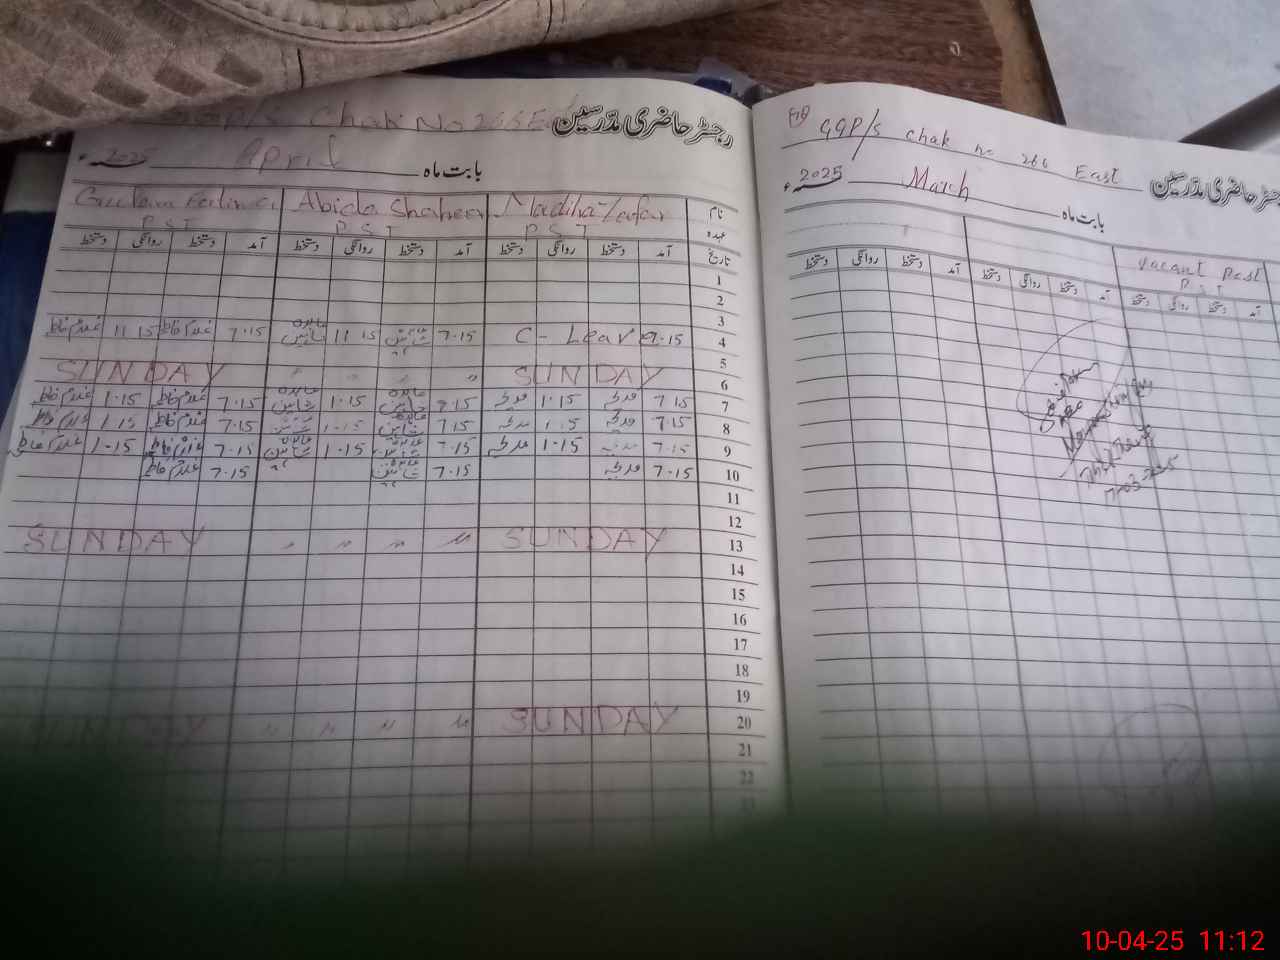 GGP/S Chak No 266E رجسٹر حاضری مدرسین
بابت ماہ April 2025ء
نام Madiha Zafar Abida Shaheen Gulam Fatima
عہدہ P.S.T P.S.T P.S.T
تاریخ آمد دستخط روانگی دستخط آمد دستخط روانگی دستخط آمد دستخط روانگی دستخط
1
2
3
4 7.15 C-Leave 7.15 11 15 7.15 غلام فاطمہ 11 15 غلام فاطمہ
5
6 SUNDAY " " " " SUNDAY
7 7.15 مدیحہ 1.15 مدیحہ 7.15 عابدہ شاہین 1.15 عابدہ شاہین 7.15 غلام فاطمہ 1.15 غلام فاطمہ
8 7.15 مدیحہ 1.15 مدیحہ 7.15 عابدہ شاہین 1.15 7.15 غلام فاطمہ 1.15 غلام فاطمہ
9 7.15 مدیحہ 1.15 مدیحہ 7.15 عابدہ شاہین 1.15 عابدہ شاہین 7.15 غلام فاطمہ 1.15 غلام فاطمہ
10 7.15 مدیحہ 7.15 عابدہ شاہین 7.15 غلام فاطمہ
11
12
13 SUNDAY " " " " SUNDAY
14
15
16
17
18
19
20 SUNDAY " " " " SUNDAY
21
22
GGP/S chak no 266 East رجسٹر حاضری مدرسین
بابت ماہ March 2025ء
Vacant Post
P.S.T
آمد دستخط روانگی دستخط آمد دستخط روانگی دستخط آمد دستخط روانگی دستخط
10-04-25 11:12